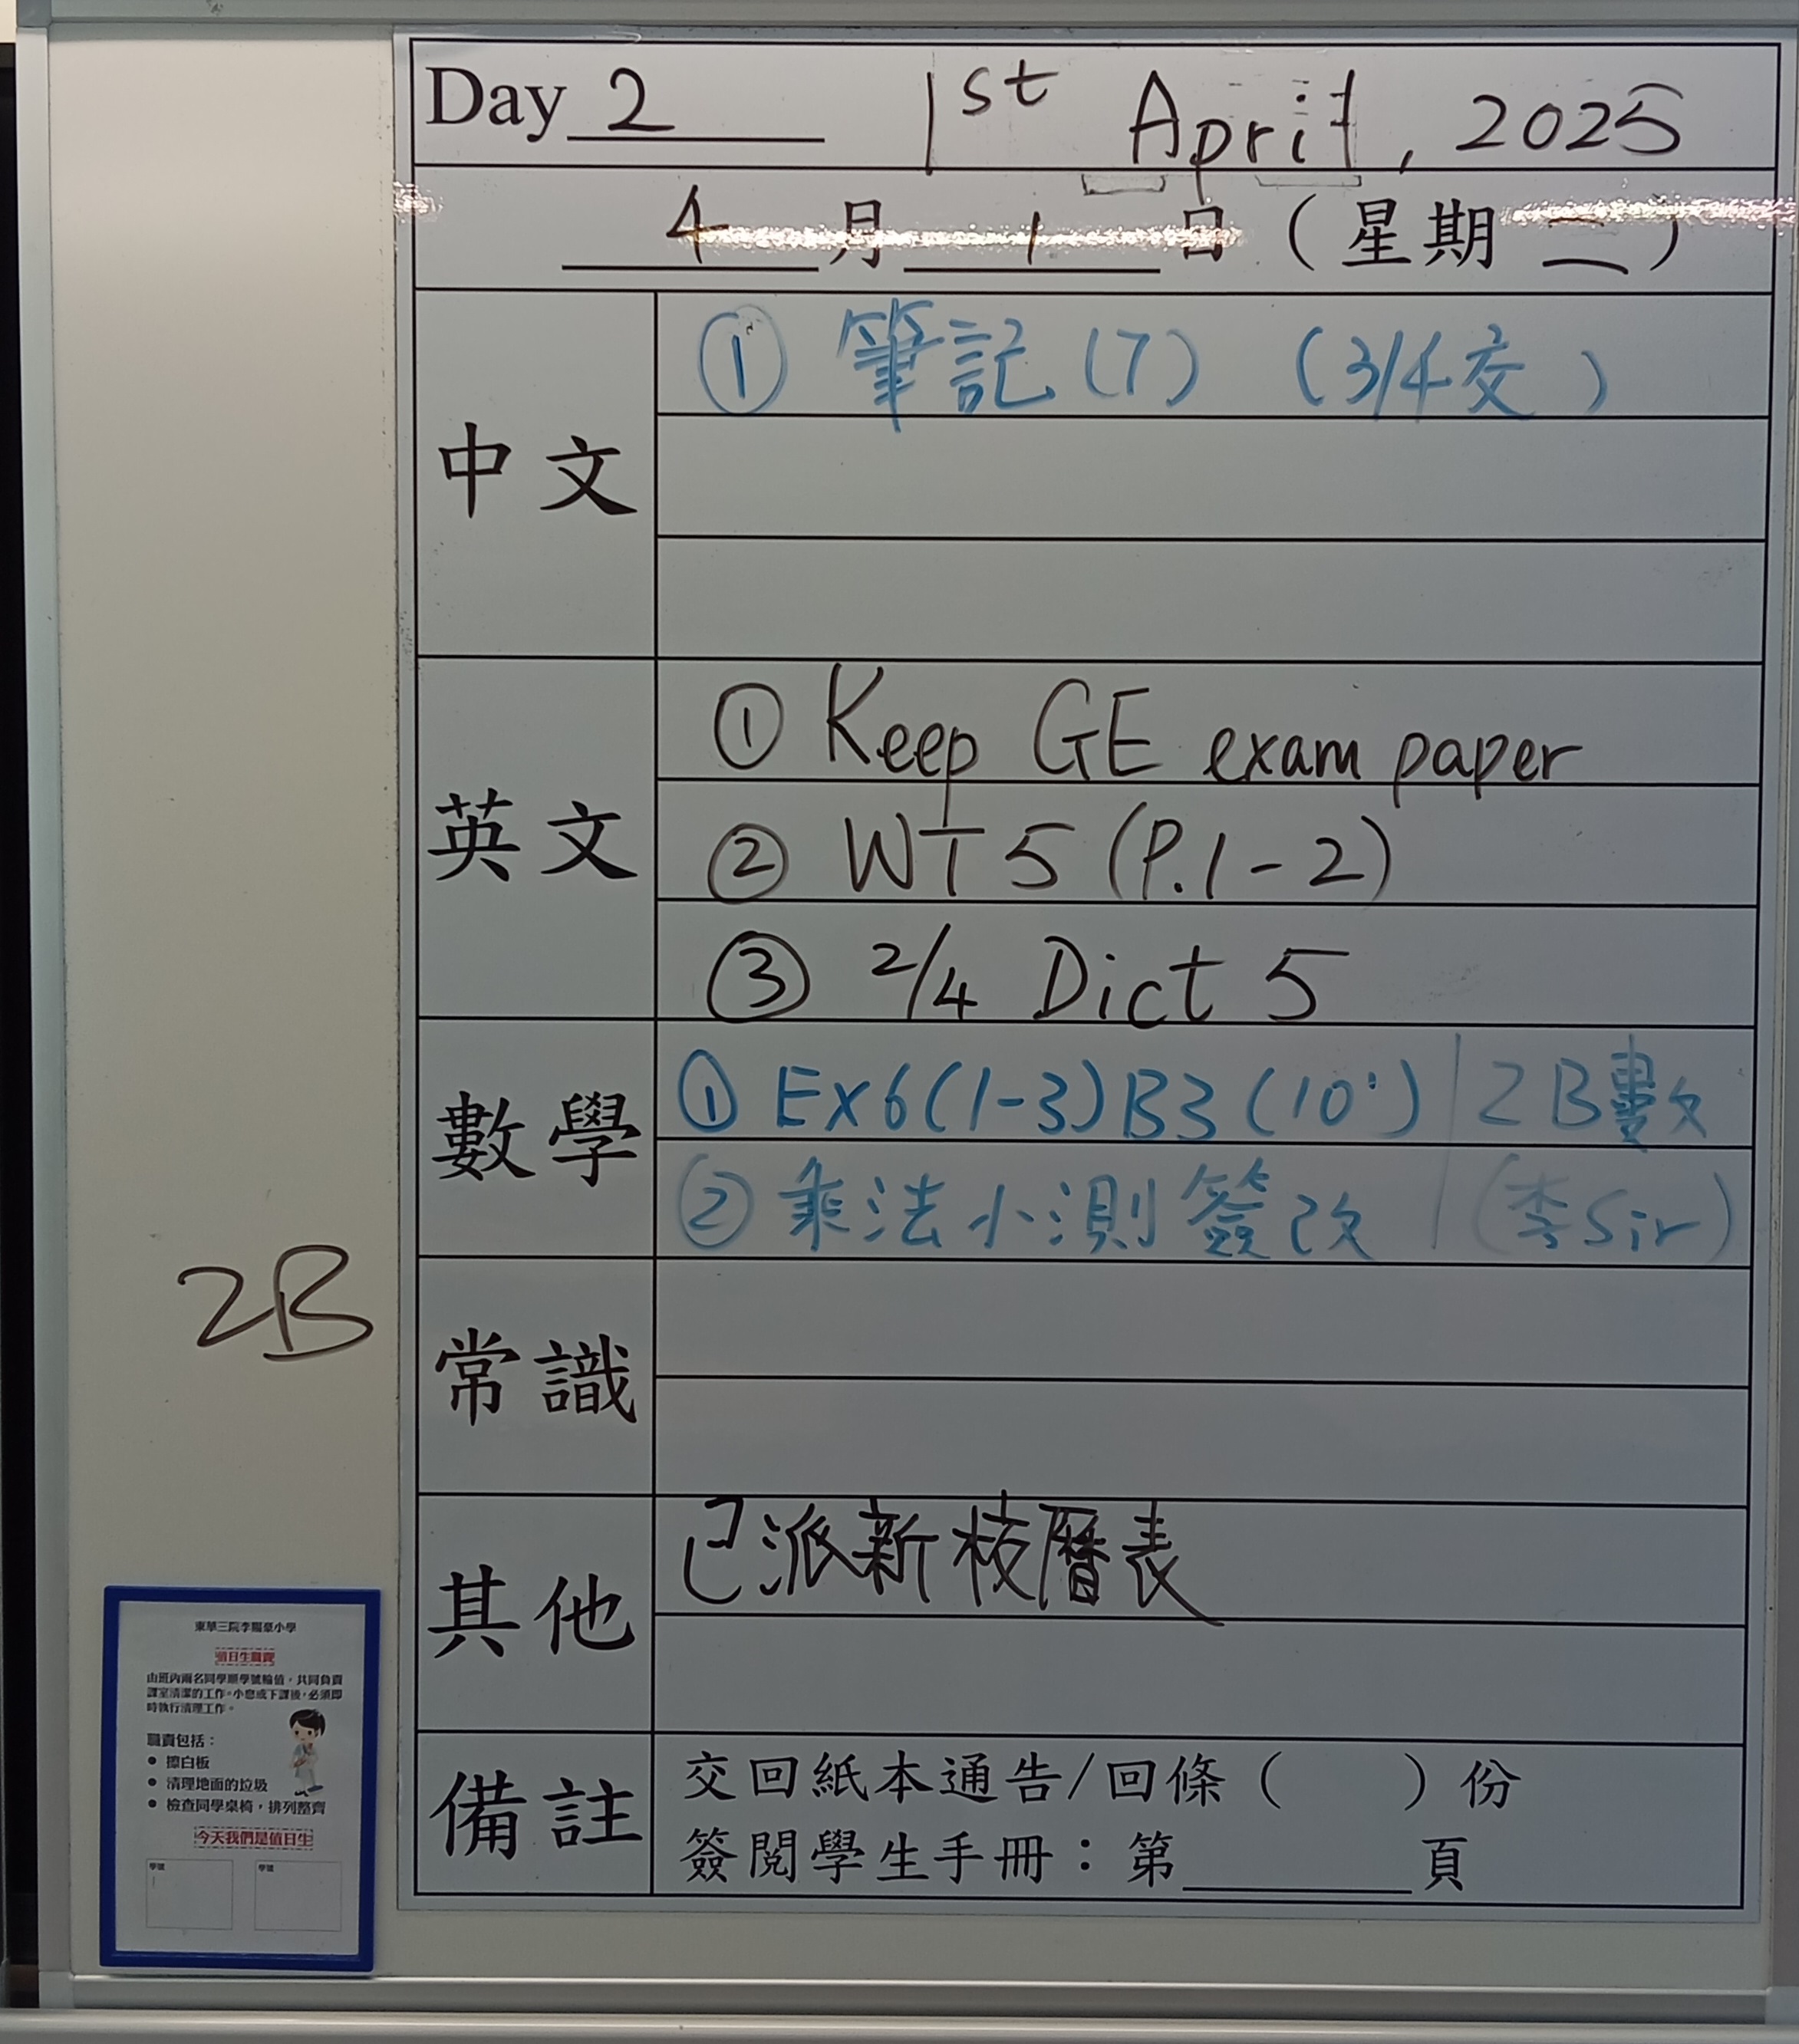 Day 2 1st April, 2025
4 月 1 日 ( 星期 二 )
中文
① 筆記 (7) (3/4交)
英文
① Keep GE exam paper
② WT 5 (P.1-2)
③ 2/4 Dict 5
數學
① Ex6(1-3)B3(10') 2B數
② 乘法小測簽改 (李Sir)
常識
其他
已派新校曆表
備註
交回紙本通告/回條 ( ) 份
簽閱學生手冊：第 頁
2B
東華三院李賜豪小學
值日生職責
由班內兩名同學順學號輪值，共同負責
課室清潔的工作。小息或下課後，必須即
時執行清理工作。
職責包括：
• 擦白板
• 清理地面的垃圾
• 檢查同學桌椅，排列整齊
今天我們是值日生
學號 學號